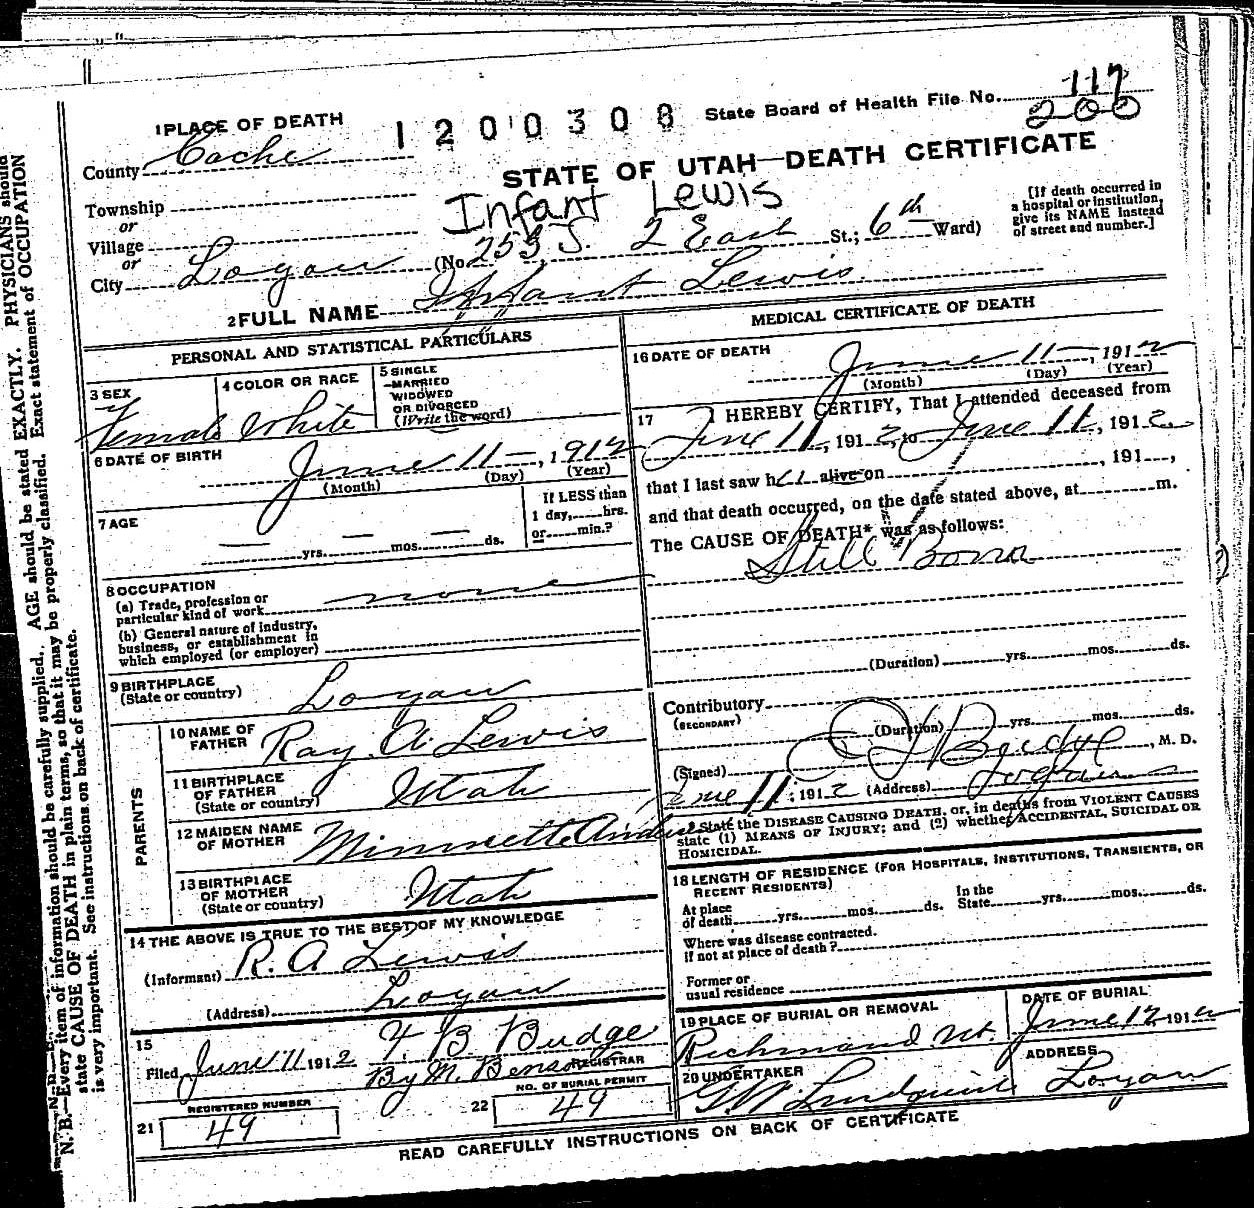 N. B.—Every item of information should be carefully supplied. AGE should be stated EXACTLY. PHYSICIANS should
state CAUSE OF DEATH in plain terms, so that it may be properly classified. Exact statement of OCCUPATION
is very important. See instructions on back of certificate.
1 PLACE OF DEATH
1200308
State Board of Health File No. 117
200
County Cache
STATE OF UTAH—DEATH CERTIFICATE
Township
or
Infant Lewis
[If death occurred in
a hospital or institution,
give its NAME instead
of street and number.]
Village
or
City Logan (No. 253 S. 2 East St.; 6th Ward)
2 FULL NAME Infant Lewis
PERSONAL AND STATISTICAL PARTICULARS
3 SEX
Female
4 COLOR OR RACE
White
5 SINGLE
MARRIED
WIDOWED
OR DIVORCED
(Write the word)
6 DATE OF BIRTH
June 11 — , 1912
(Month) (Day) (Year)
7 AGE
— yrs. — mos. — ds.
If LESS than
1 day, hrs.
or min.?
8 OCCUPATION
(a) Trade, profession or
particular kind of work none
(b) General nature of industry,
business, or establishment in
which employed (or employer)
9 BIRTHPLACE
(State or country) Logan
PARENTS
10 NAME OF
FATHER Ray A. Lewis
11 BIRTHPLACE
OF FATHER
(State or country) Utah
12 MAIDEN NAME
OF MOTHER Minnette
13 BIRTHPLACE
OF MOTHER
(State or country) Utah
14 THE ABOVE IS TRUE TO THE BEST OF MY KNOWLEDGE
(Informant) R. A Lewis
(Address) Logan
15
Filed June 11 1912 F. B Budge
By M. Benson REGISTRAR
REGISTERED NUMBER
21 49
NO. OF BURIAL PERMIT
22 49
MEDICAL CERTIFICATE OF DEATH
16 DATE OF DEATH
June 11 — , 1912
(Month) (Day) (Year)
17 I HEREBY CERTIFY, That I attended deceased from
June 11, 1912, to June 11, 1912.
that I last saw her alive on , 191 ,
and that death occurred, on the date stated above, at m.
The CAUSE OF DEATH* was as follows:
Still Born
(Duration) yrs. mos. ds.
Contributory
(SECONDARY)
(Duration) yrs. mos. ds.
(Signed) Budge, M. D.
June 11, 1912 (Address) Logan
* State the DISEASE CAUSING DEATH, or, in deaths from VIOLENT CAUSES
state (1) MEANS OF INJURY; and (2) whether ACCIDENTAL, SUICIDAL OR
HOMICIDAL.
18 LENGTH OF RESIDENCE (FOR HOSPITALS, INSTITUTIONS, TRANSIENTS, OR
RECENT RESIDENTS)
At place
of death yrs. mos. ds.
In the
State yrs. mos. ds.
Where was disease contracted.
if not at place of death?
Former or
usual residence
19 PLACE OF BURIAL OR REMOVAL
Richmond Ut.
DATE OF BURIAL
June 12 1912
20 UNDERTAKER
Lindquist
ADDRESS
Logan
READ CAREFULLY INSTRUCTIONS ON BACK OF CERTIFICATE